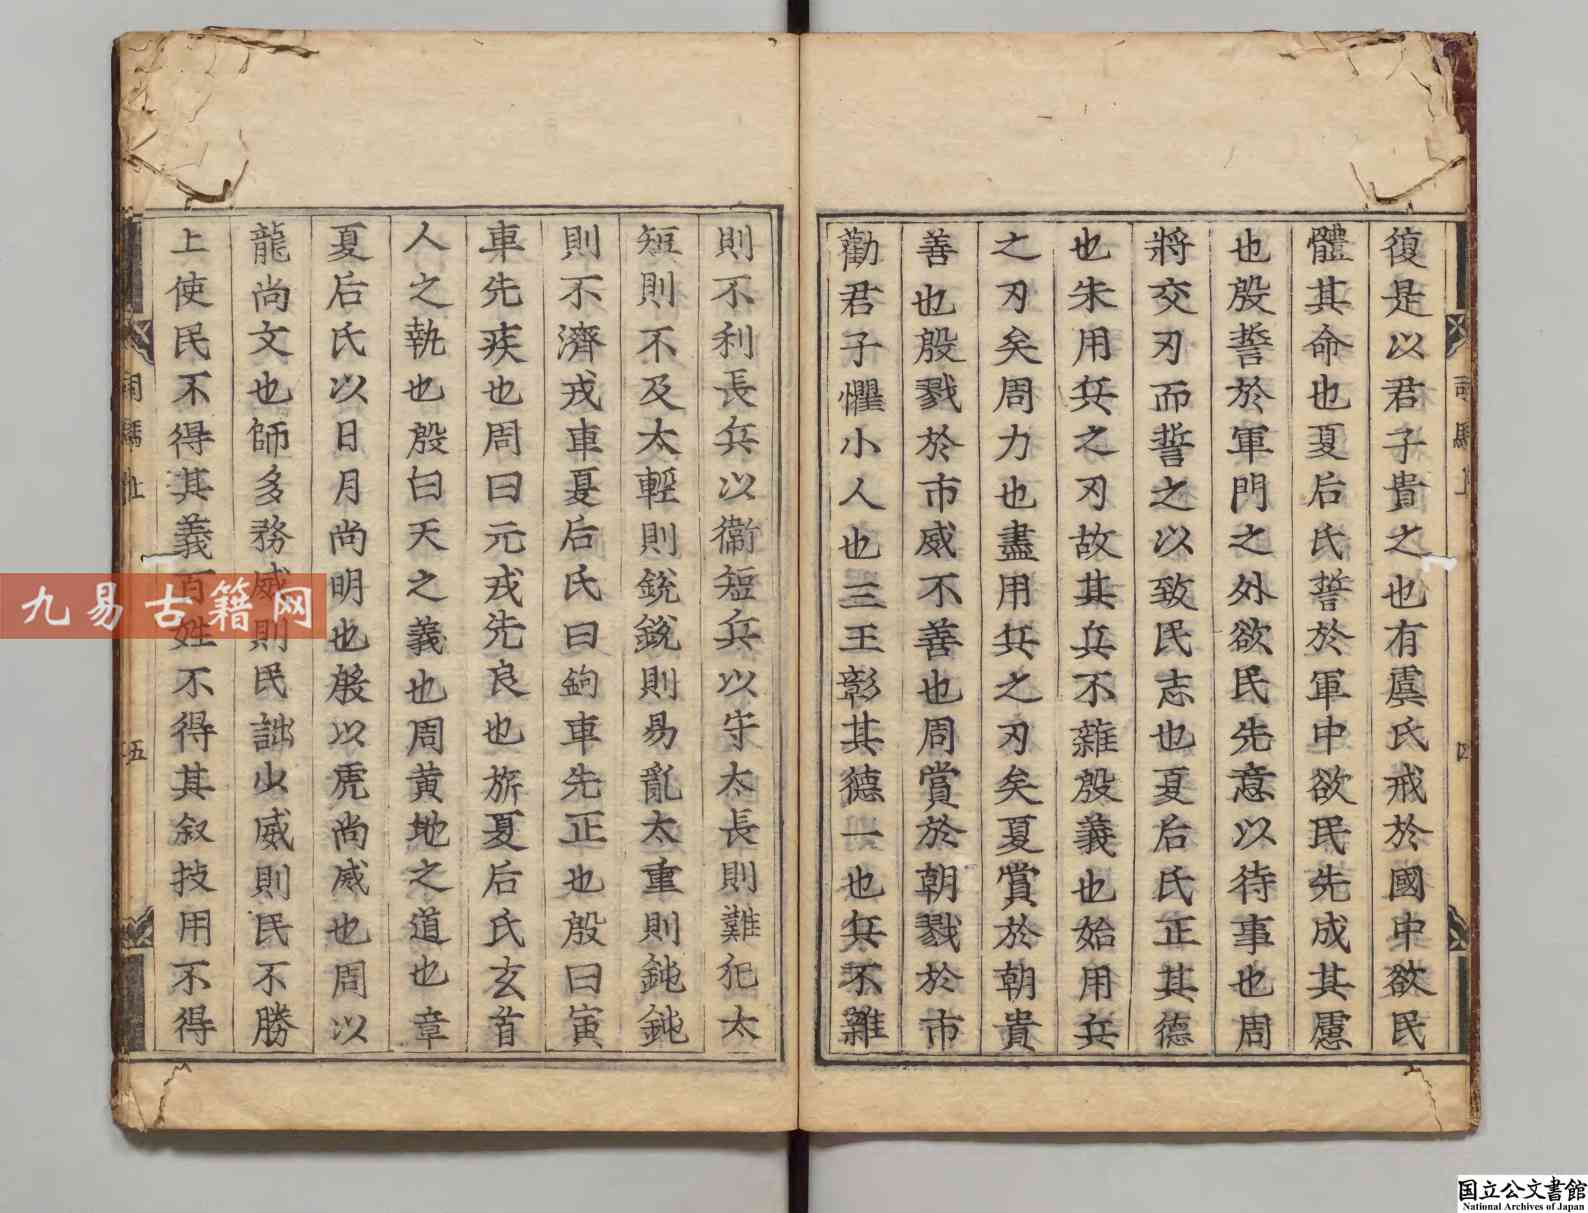 復是以君子貴之也有虞氏戒於國中欲民
體其命也夏后氏誓於軍中欲民先成其慮
也殷誓於軍門之外欲民先意以待事也周
將交刃而誓之以致民志也夏后氏正其德
也朱用兵之刃故其兵不雜殷義也始用兵
之刃矣周力也盡用兵之刃矣夏賞於朝貴
善也殷戮於市威不善也周賞於朝戮於市
勸君子懼小人也三王彰其德一也兵不雜
則不利長兵以衞短兵以守太長則難犯太
短則不及太輕則銳銳則易亂太重則鈍鈍
則不濟戎車夏后氏曰鉤車先正也殷曰寅
車先疾也周曰元戎先良也旂夏后氏玄首
人之執也殷曰天之義也周黄地之道也章
夏后氏以日月尚明也殷以虎尚威也周以
龍尚文也師多務威則民詘少威則民不勝
上使民不得其義百姓不得其叙技用不得
司馬上
四
五
九易古籍网
国立公文書館
National Archives of Japan